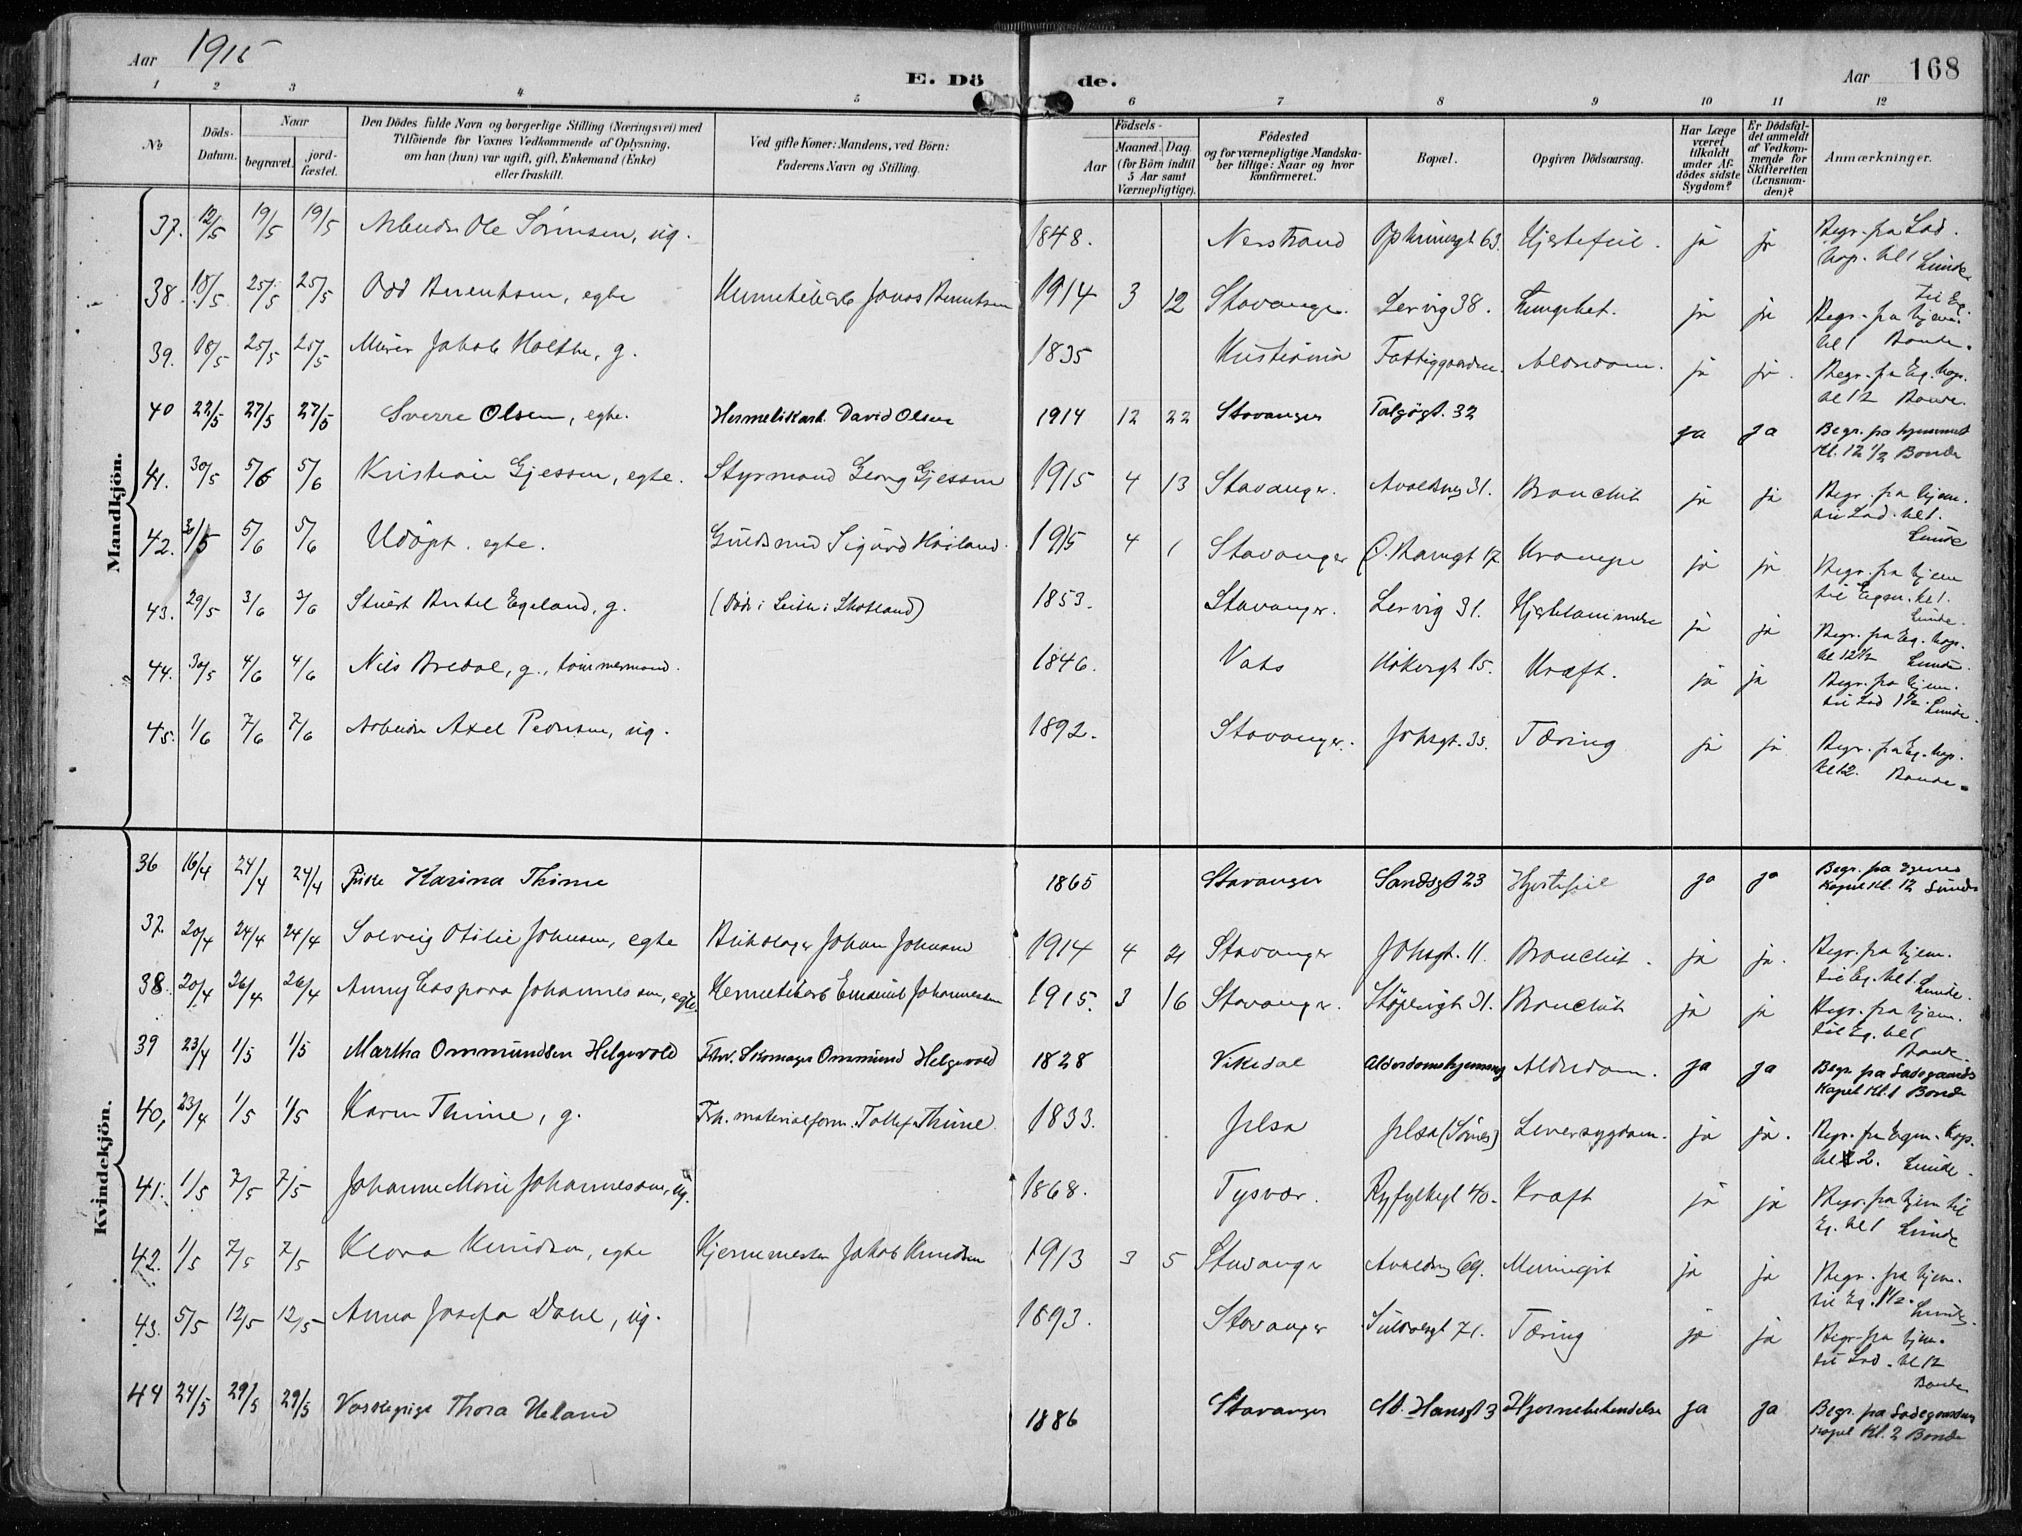 Aar 1915
E. Döde.
Aar 168
1 2 3 4 5 6 7 8 9 10 11 12
No
Döds-Datum.
Naar
begravet.
jord-fæstet.
Den Dödes fulde Navn og borgerlige Stilling (Næringsvei) med
Tilföiende for Voxnes Vedkommende af Oplysning,
om han (hun) var ugift, gift, Enkemand (Enke)
eller fraskilt.
Ved gifte Koner: Mandens, ved Börn:
Faderens Navn og Stilling.
Födsels-
Aar
Maaned. Dag.
(for Börn indtil
5 Aar samt
Værnepligtige).
Födested
og for værnepligtige Mandska-
ber tillige: Naar og hvor
konfirmeret.
Bopæl.
Opgiven Dödsaarsag.
Har Læge
været
tilkaldt
under Af-
dödes sidste
Sygdom?
Er Dödsfal-
det anmeldt
af Vedkom-
mende for
Skifteretten
(Lensman-
den)?
Anmærkninger.
Mandkjön.
37. 12/5 19/5 19/5 Arbeider Ole Sörensen, ug. 1848. Nerstrand 63. Hjertefeil. ja ja Begr. fra Lad. kap. kl 1 Lunde
38. 18/5 25/5 25/5 Odd Berentsen, egte Hermetikarb Jonas Berentsen 1914 3 12 Stavanger. Lervig 38. Lungebet. ja ja Begr. fra hjem. til Eg. kl 1 Bonde.
39. 18/5 25/5 25/5 Murer Jakob Holthe, g. 1835 Kristiania Fattiggaarden. Alderdom. ja ja. Begr. fra Eg. kap. kl 12 Bonde.
40 22/5 27/5 27/5 Sverre Olsen, egte. Hermetikarb. David Olsen 1914 12 22 Stavanger Talgögt. 32 ja ja Begr. fra hjemmet Kl. 12 1/2 Bonde
41. 30/5 5/6 5/6 Kristian Gjessen, egte. Styrmand Georg Gjessen 1915 4 13 Stavanger. Avaldsng 31. Bronchit ja ja Begr. fra hjem. til Lad. kl 1. Lunde
42. 30/5 5/6 5/6 Udöpt. egte. Guldsmed Sigurd Haaland. 1915 4 1 Stavanger Ö. Banegt 17 Krampe ja ja Begr. fra hjem til Egen. kl 1. Lunde.
43. 29/5 3/6 3/6 Stuert Bertel Egeland, g. (Död i Leith i Skotland) 1853. Stavanger. Lervig 31. Hjertelammelse ja ja Begr. fra Eg. kap. kl 12 1/2 Lunde.
44. 30/5 4/6 4/6 Nils Bredal, g., tömmermand. 1846. Vats Hökergt 15. Kræft. ja ja Begr. fra hjem. til Lad 1 1/2. Lunde.
45. 1/6 7/6 7/6 Arbeider Axel Pedersen, ug. 1892. Stavanger. Johsgt. 35. Tæring ja ja Begr. fra Eg. kap. kl 12. Bonde.
Kvindekjön.
36 16/4 24/4 24/4 Frøken Karina Thime 1865 Stavanger Sandsgt 23 Hjertefeil ja ja Begr. fra Egenes Kapel Kl. 12 Lunde
37. 20/4 24/4 24/4 Solveig Otilie Johnsen, egte Johan Johnsen 1914 4 21 Stavanger Johsgt. 11. Bronchit. ja ja. Begr. fra hjem. til Eg. kl 1. Lunde.
38. 20/4 26/4 26/4 Anny Caspara Johannessen, egte. Hermetikarb Emanuel Johannessen 1915. 3 16 Stavanger. Stöperigt 31. Bronchit ja ja Begr. fra hjem. til Eg. kl 1 Bonde.
39 23/4 1/5 1/5 Martha Ommundsen Helgevold Fhv. Skomager Ommund Helgevold 1828 Vikedal Alderdomshjemmet Alderdom. ja ja Begr. fra Ladegaards Kapel Kl. 1 Bonde
40, 23/4 1/5 1/5 Karen Thime, g. Frh. materialforv. Tollef Thime. 1833. Jelsa Jelsa (Sönes) Leversygdom. ja ja. Begr. fra Egen. kap. kl 2. Lunde.
41. 1/5 7/5 7/5 Johanne Marie Johannessen, ug. 1868. Tysvær. Ryfylkegt 40. Kræft ja ja Begr. fra hjem til Eg. kl 1 Lunde
42. 1/5 7/5 7/5 Klara Knudsen, egte Jakob Knudsen 1913 3 5 Stavanger Avaldsng 69. Meningit ja ja Begr. fra hjem. til Eg. 1 1/2. Lunde.
43. 5/5 12/5 12/5 Anna Josefa Dahl, ug. 1893. Stavanger Suldalsgt 71. Tæring ja ja Begr. fra hjem. til Lad. kl 12 Bonde
44 24/5 29/5 29/5 Vaskepige Thora Ueland 1886 Stavanger St. Hansgt 3 Hjernebetændelse ja ja Begr. fra Ladegaardens Kapel Kl. 2 Bonde